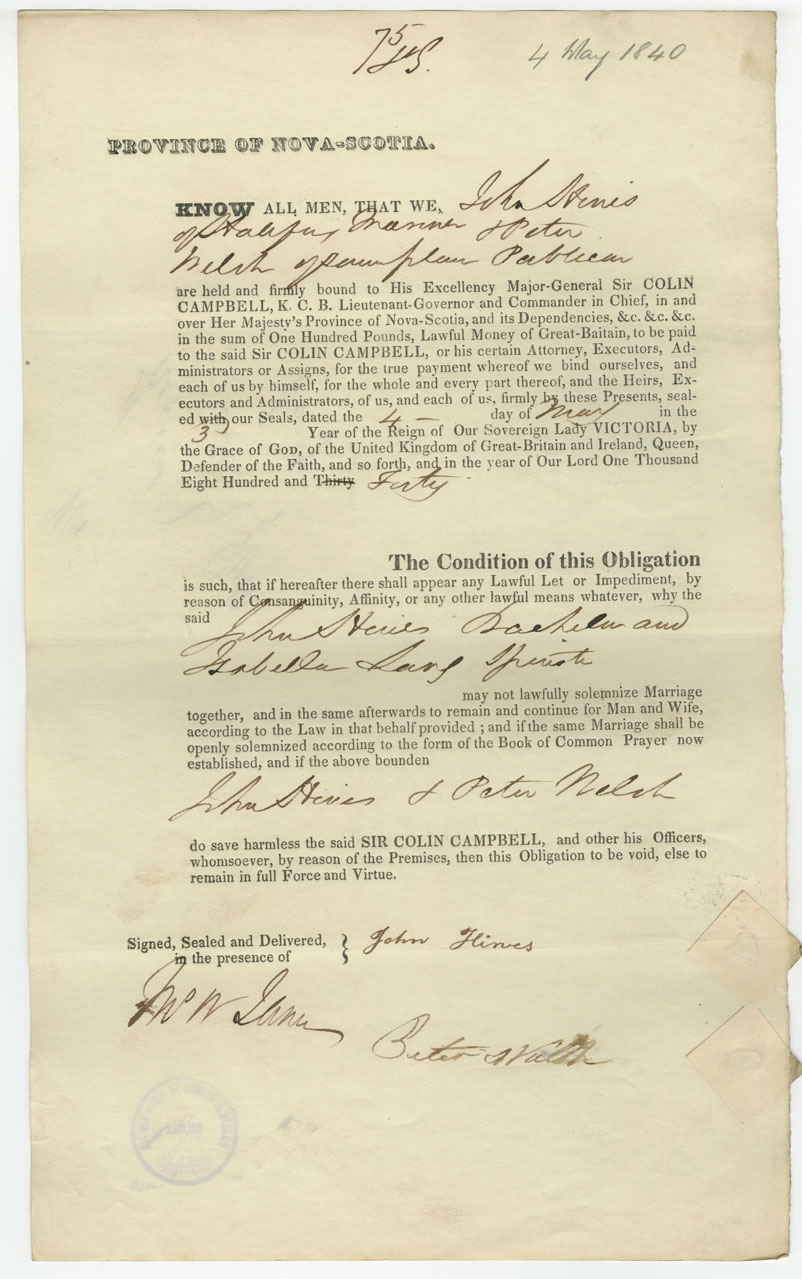 75
4 May 1840
PROVINCE OF NOVA-SCOTIA.
KNOW ALL MEN, THAT WE, John Hines
of Halifax Mariner & Peter
Welsh of same place Publican
are held and firmly bound to His Excellency Major-General Sir COLIN
CAMPBELL, K. C. B. Lieutenant-Governor and Commander in Chief, in and
over Her Majesty's Province of Nova-Scotia, and its Dependencies, &c. &c. &c.
in the sum of One Hundred Pounds, Lawful Money of Great-Baitain, to be paid
to the said Sir COLIN CAMPBELL, or his certain Attorney, Executors, Ad-
ministrators or Assigns, for the true payment whereof we bind ourselves, and
each of us by himself, for the whole and every part thereof, and the Heirs, Ex-
ecutors and Administrators, of us, and each of us, firmly by these Presents, seal-
ed with our Seals, dated the 4 — day of May in the
3 Year of the Reign of Our Sovereign Lady VICTORIA, by
the Grace of GOD, of the United Kingdom of Great-Britain and Ireland, Queen,
Defender of the Faith, and so forth, and in the year of Our Lord One Thousand
Eight Hundred and Thirty Forty
The Condition of this Obligation
is such, that if hereafter there shall appear any Lawful Let or Impediment, by
reason of Consanguinity, Affinity, or any other lawful means whatever, why the
said John Hines Bachelor and
Isabella Lang Spinster
may not lawfully solemnize Marriage
together, and in the same afterwards to remain and continue for Man and Wife,
according to the Law in that behalf provided ; and if the same Marriage shall be
openly solemnized according to the form of the Book of Common Prayer now
established, and if the above bounden
John Hines & Peter Welsh
do save harmless the said SIR COLIN CAMPBELL, and other his Officers,
whomsoever, by reason of the Premises, then this Obligation to be void, else to
remain in full Force and Virtue.
Signed, Sealed and Delivered,
in the presence of
John Hines
Peter Walsh